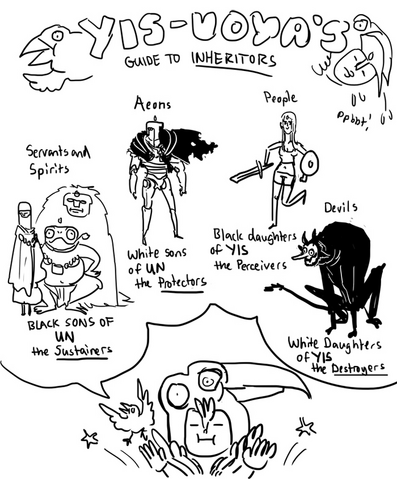 YIS-UOYA'S
GUIDE TO INHERITORS
ppbbt!
Aeons
People
Servants and
Spirits
Devils
White sons
of UN
the Protectors
Black daughters
of YIS
the Perceivers
BLACK SONS OF
UN
the Sustainers
White Daughters
of YIS
the Destroyers